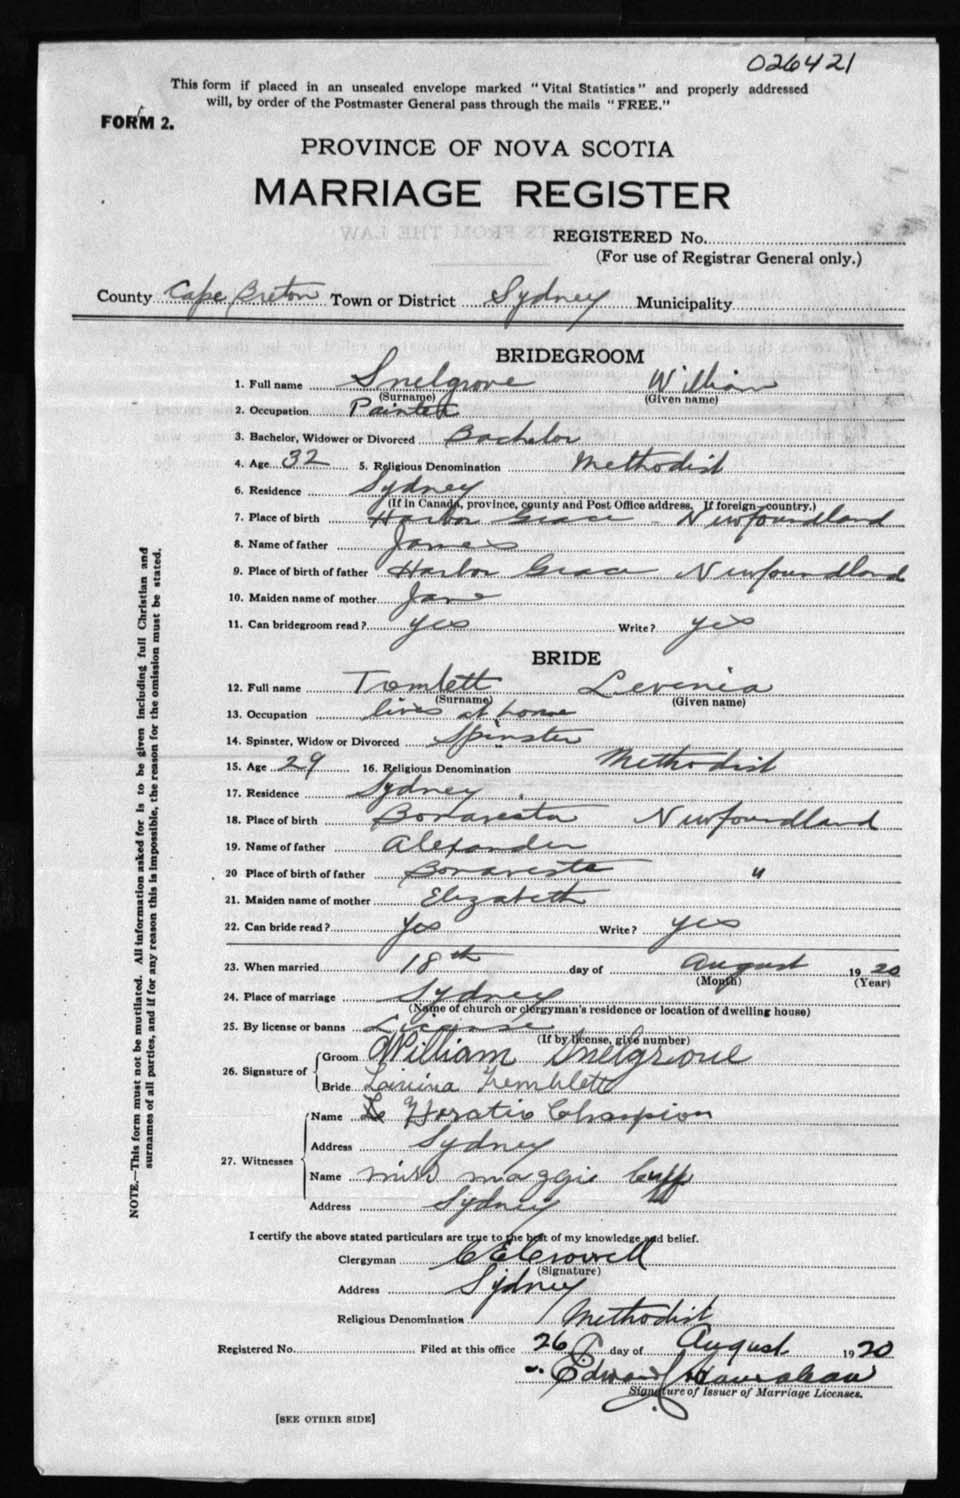 026421
This form if placed in an unsealed envelope marked "Vital Statistics" and properly addressed
will, by order of the Postmaster General pass through the mails "FREE."
FORM 2.
PROVINCE OF NOVA SCOTIA
MARRIAGE REGISTER
REGISTERED No.
(For use of Registrar General only.)
County Cape Breton Town or District Sydney Municipality
BRIDEGROOM
1. Full name Snelgrove William
(Surname) (Given name)
2. Occupation Painter
3. Bachelor, Widower or Divorced Bachelor
4. Age 32 5. Religious Denomination Methodist
6. Residence Sydney
(If in Canada, province, county and Post Office address. If foreign—country.)
7. Place of birth Harbor Grace Newfoundland
8. Name of father James
9. Place of birth of father Harbor Grace Newfoundland
10. Maiden name of mother Jane
11. Can bridegroom read? yes Write? yes
BRIDE
12. Full name Tremlett Levenia
(Surname) (Given name)
13. Occupation lives at home
14. Spinster, Widow or Divorced Spinster
15. Age 29 16. Religious Denomination Methodist
17. Residence Sydney
18. Place of birth Bonavesta Newfoundland
19. Name of father Alexander
20 Place of birth of father Bonavesta "
21. Maiden name of mother Elizabeth
22. Can bride read? Yes Write? yes
23. When married 18th day of August 1920
(Month) (Year)
24. Place of marriage Sydney
(Name of church or clergyman's residence or location of dwelling house)
25. By license or banns License
(If by license, give number)
26. Signature of Groom William Snelgrove
Bride Tremblett
27. Witnesses Name Horatio Champion
Address Sydney
Name Miss Maggie Cuff
Address Sydney
I certify the above stated particulars are true to the best of my knowledge and belief.
Clergyman C E Crowell
(Signature)
Address Sydney
Religious Denomination Methodist
Registered No. Filed at this office 26 day of August 1920
Edward
Signature of Issuer of Marriage Licenses.
[SEE OTHER SIDE]
NOTE.—This form must not be mutilated. All information asked for is to be given including full Christian and
surnames of all parties, and if for any reason this is impossible, the reason for the omission must be stated.